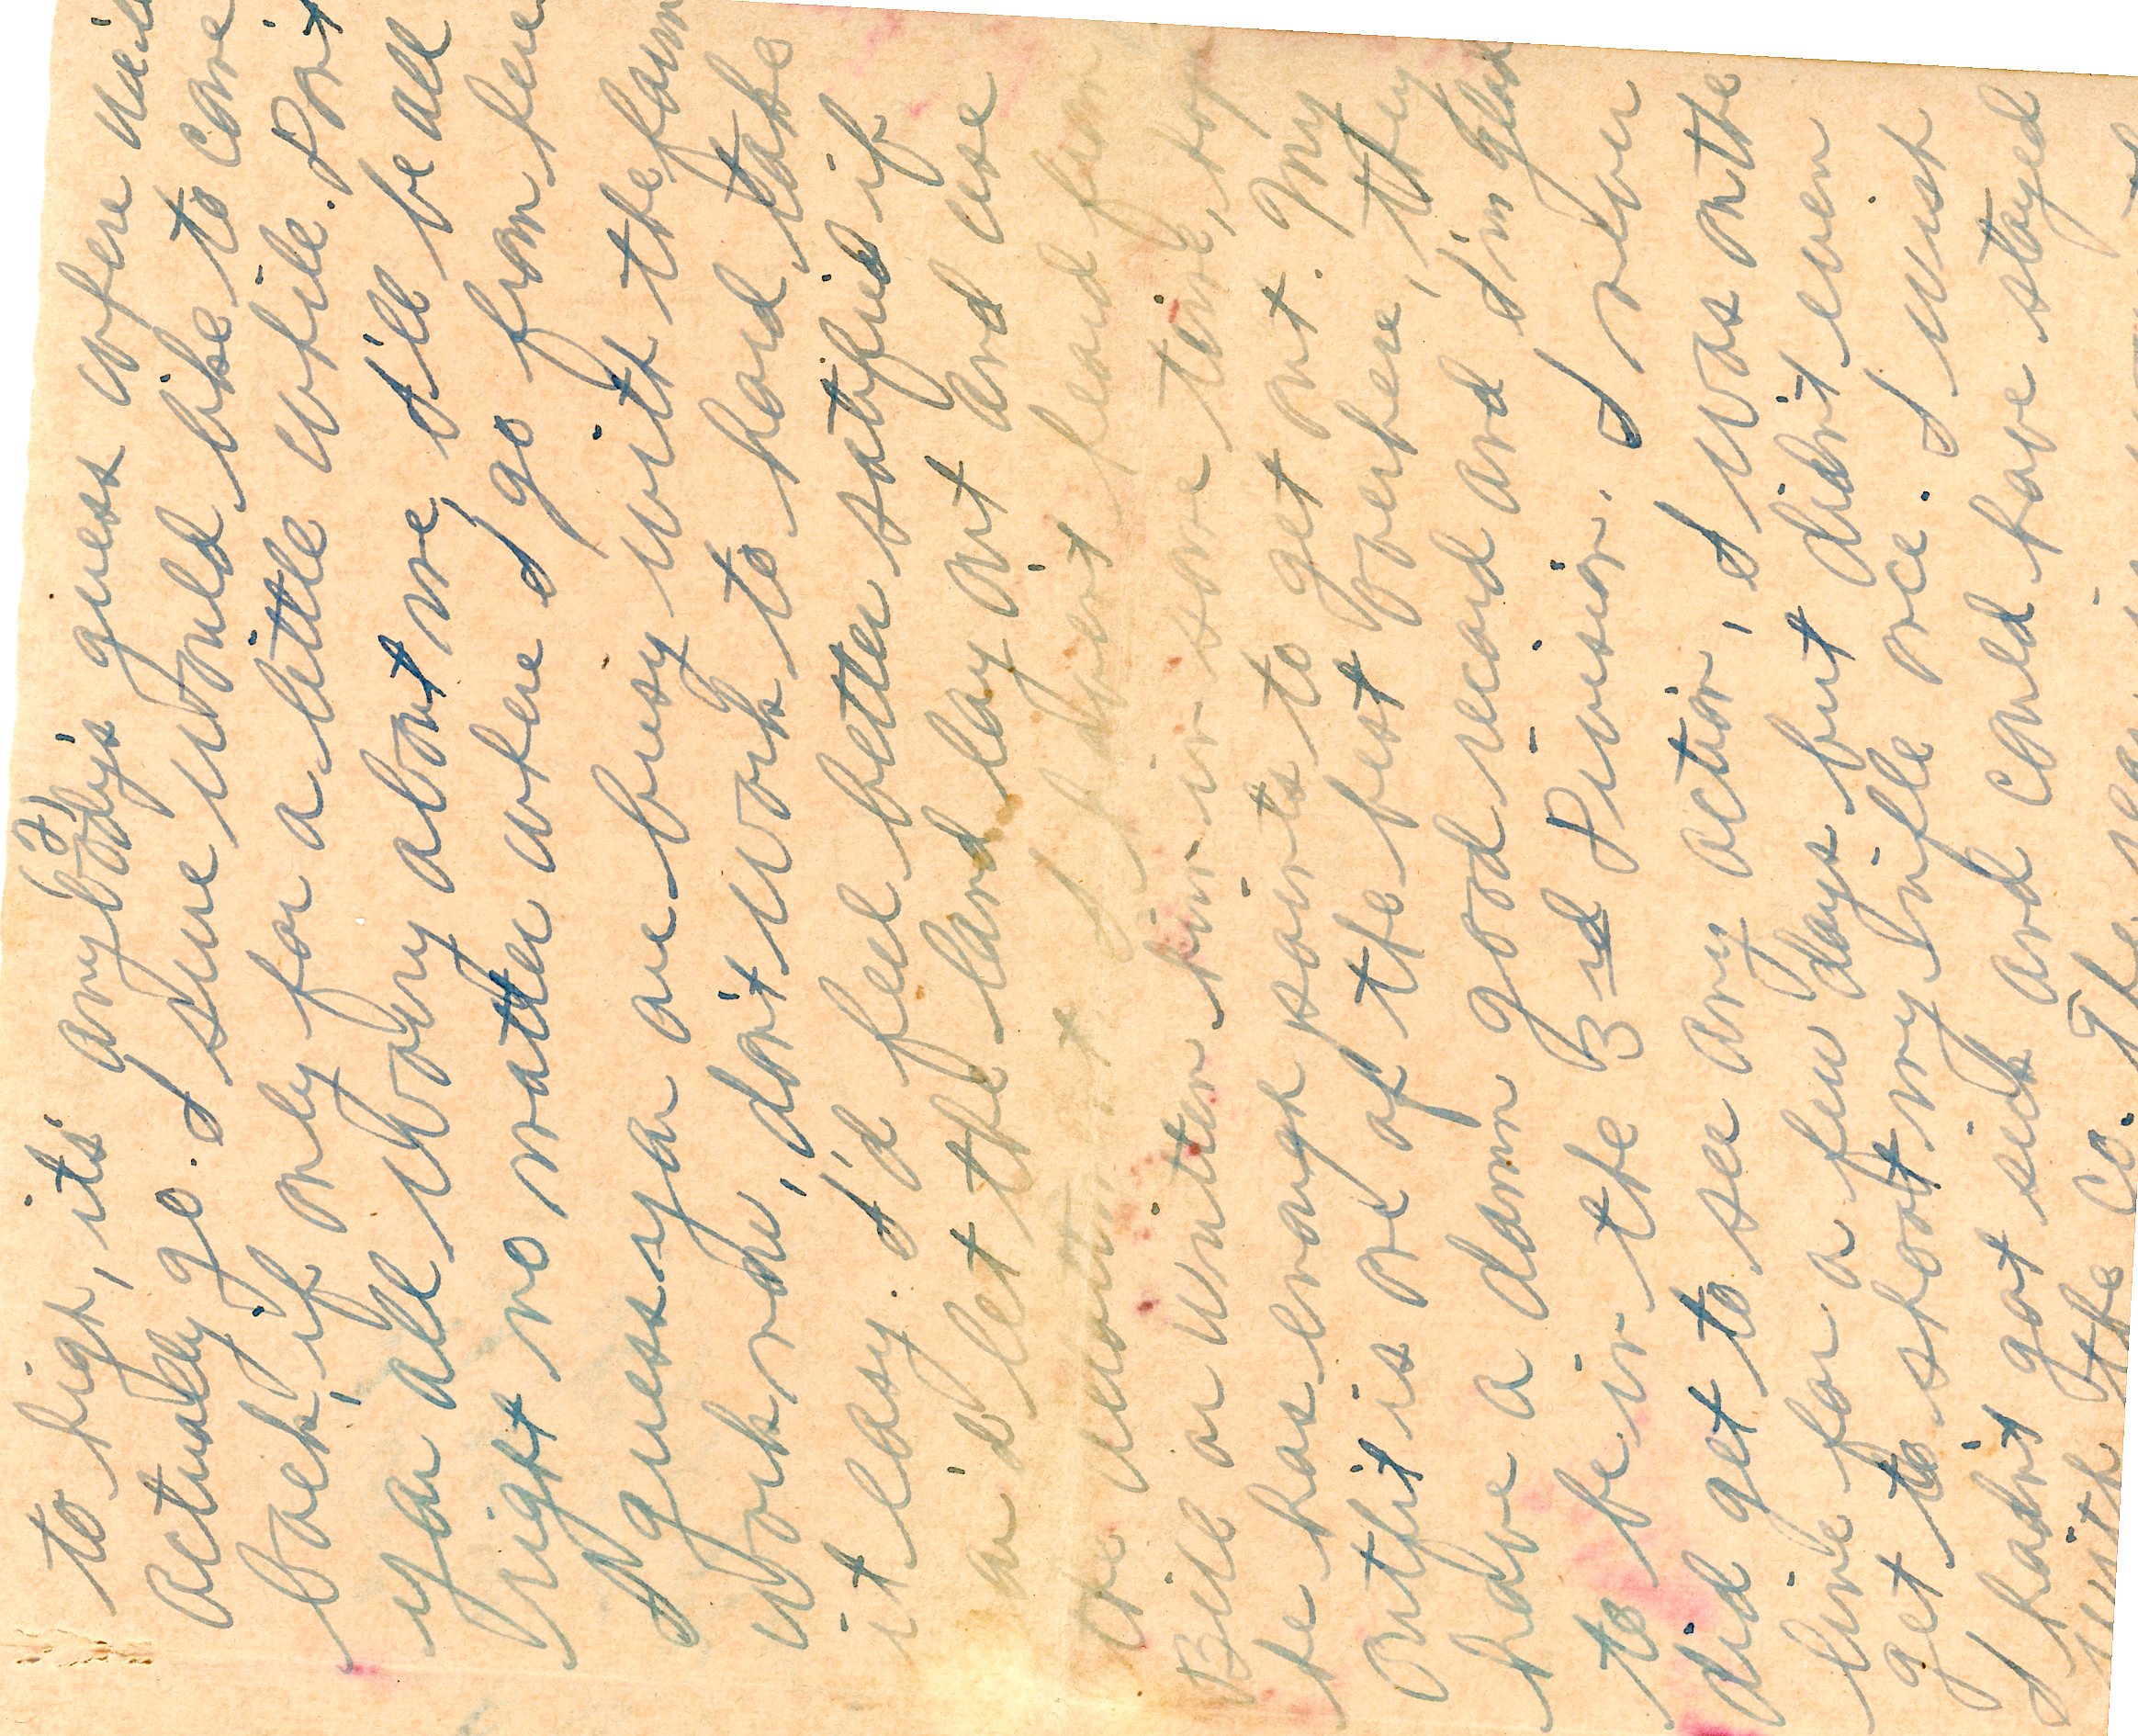 (3)
to high, its anybody's guess where we'll
actually go. I sure would like to come
back, if only for a little while. Don't
you all worry about me, I'll be all
right no matter where I go from here
I guess you are busy with the farm
work now, don't work to hard, take
it easy. I'd feel better satisfied if
you'd let the land lay out and use
the I haven't heard from
Bill or written him in some time, hope
he has enough points to get out. My
outfit is one of the best over here, they
have a damn good record and I'm glad
to be in the 3rd Division. I never
did get to see any action, I was on the
line for a few days but didn't even
get to shoot my rifle once. I wish
I hadn't got sick and could have stayed
with the Co. The